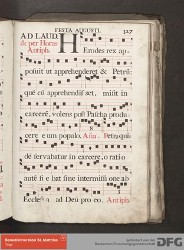 FESTA AUGUSTI. 327
AD LAUD.
& per Horas
Antiph.
HErodes rex ap-
posuit ut apprehenderet & Petrũ:
quẽ cũ apprehendisset, misit in
carcerẽ, volens post Pascha produ-
cere eum populo. Ana. Petrus qui-
dẽ servabatur in carcere, oratio
autẽ fiebat sine intermissione ab
Ecclesia ad Deũ pro eo. Antiph.
DFG